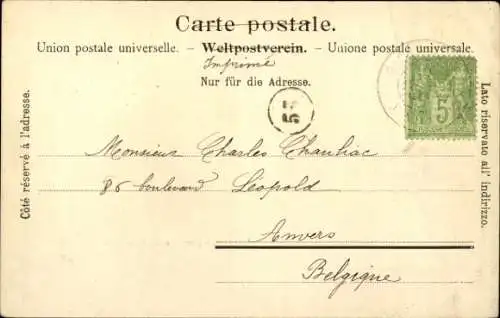 Carte postale.
Union postale universelle. – Weltpostverein. – Unione postale universale.
Imprimé
Nur für die Adresse.
55
5
Côté réservé à l'adresse.
Lato riservato all' indirizzo.
Monsieur Charles Chauliac
86 boulevard Léopold
Anvers
Belgique